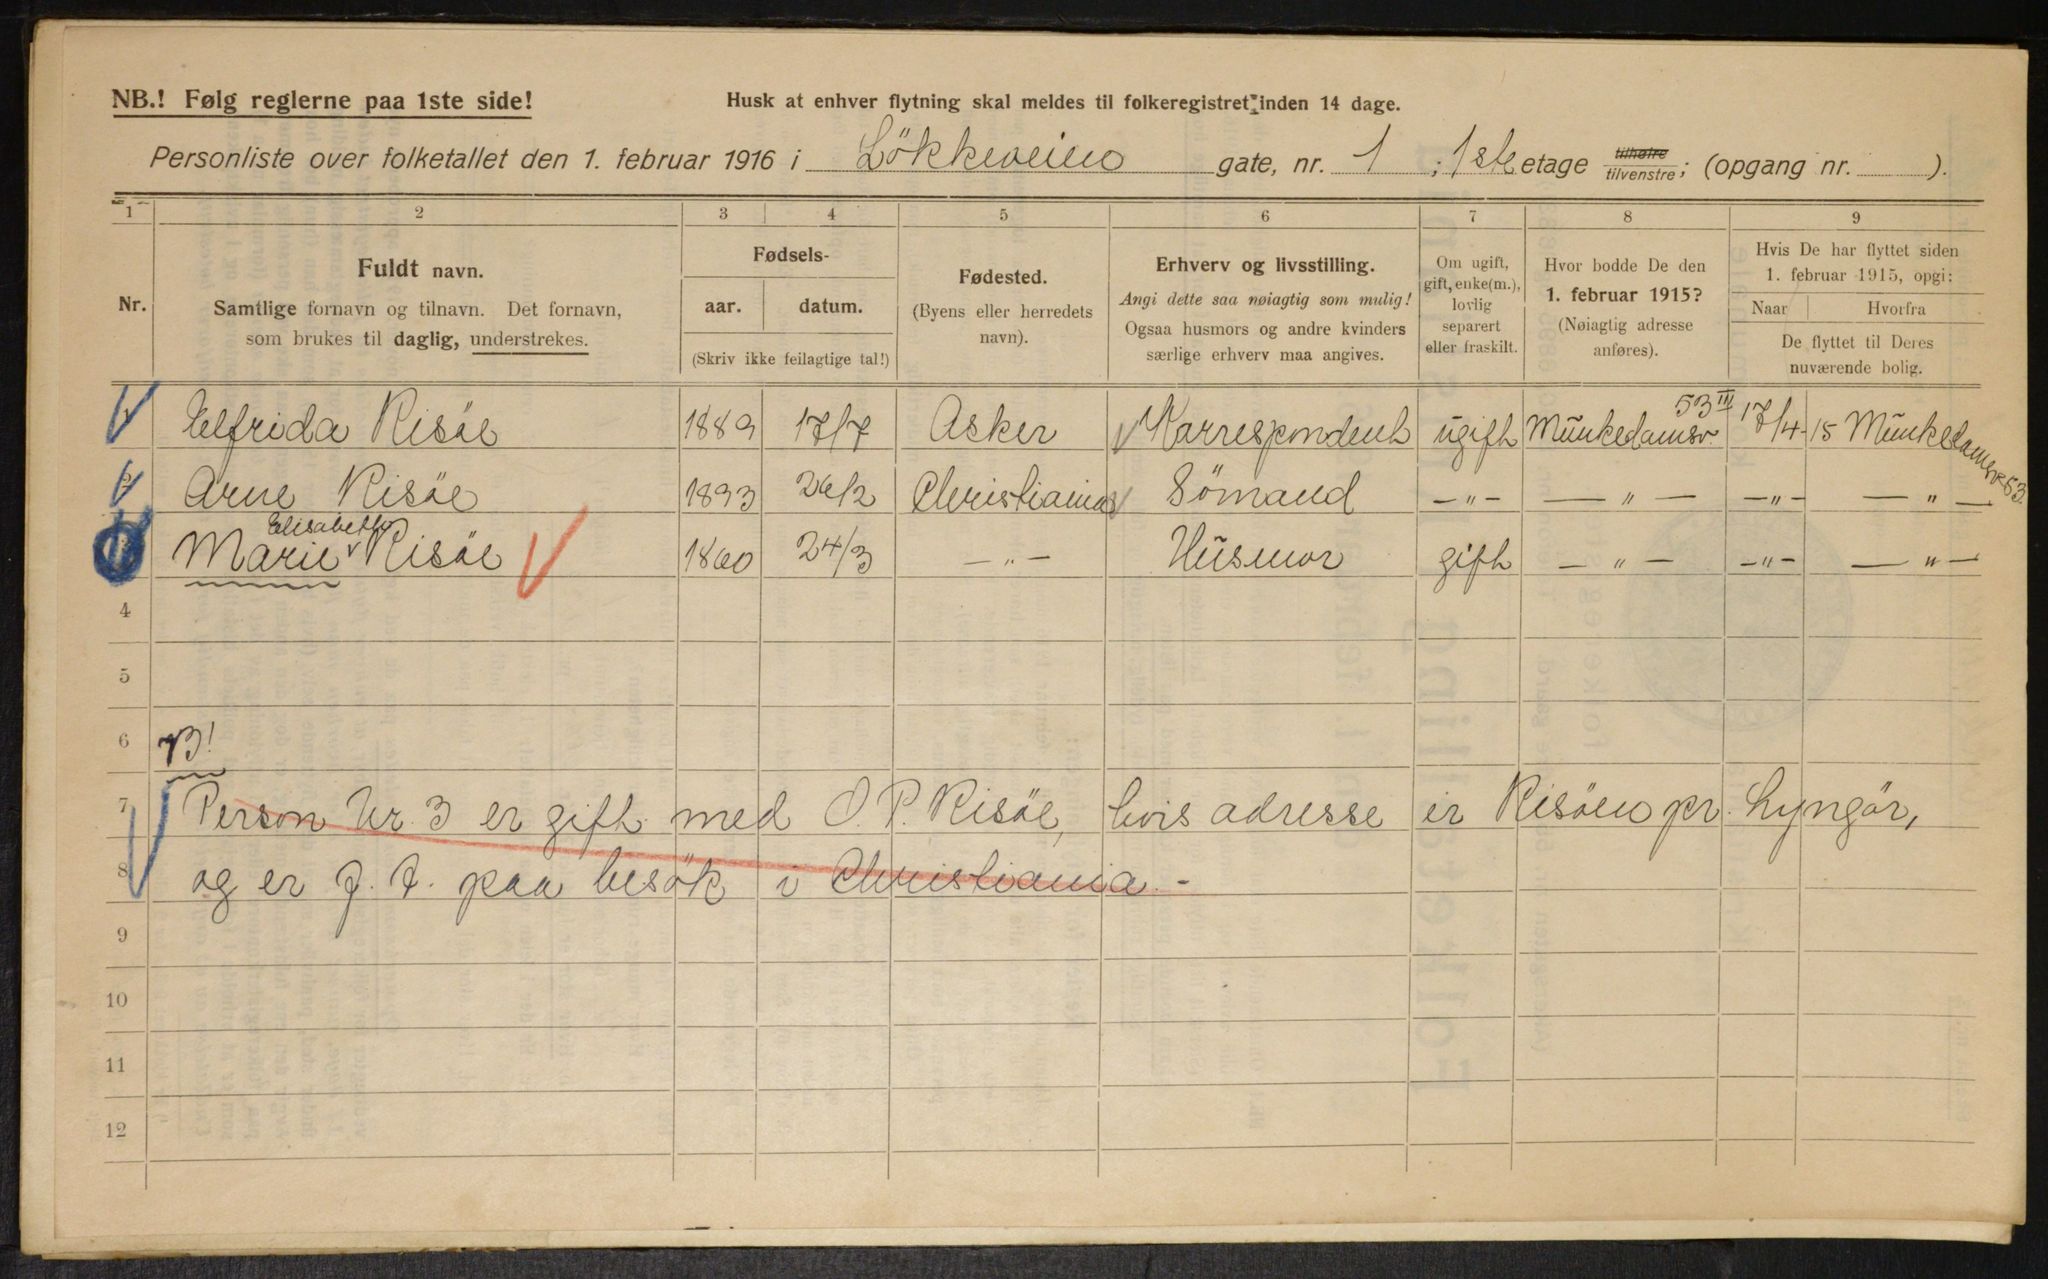 NB.! Følg reglerne paa 1ste side!
Husk at enhver flytning skal meldes til folkeregistret inden 14 dage.
Personliste over folketallet den 1. februar 1916 i Lökkeveien gate, nr. 1 ; 1ste etage tilhøire tilvenstre; (opgang nr. ).
1 2 3 4 5 6 7 8 9
Nr.
Fuldt navn.
Samtlige fornavn og tilnavn. Det fornavn,
som brukes til daglig, understrekes.
Fødsels-
aar. datum.
(Skriv ikke feilagtige tal!)
Fødested.
(Byens eller herredets
navn).
Erhverv og livsstilling.
Angi dette saa nøiagtig som mulig!
Ogsaa husmors og andre kvinders
særlige erhverv maa angives.
Om ugift,
gift, enke(m.),
lovlig
separert
eller fraskilt.
Hvor bodde De den
1. februar 1915?
(Nøiagtig adresse
anføres).
Hvis De har flyttet siden
1. februar 1915, opgi:
Naar Hvorfra
De flyttet til Deres
nuværende bolig.
1 Elfrida Risöe 1889 17/7 Asker Korrespondent ugift Munkedamsv. 53 III 17/4-15 Munkedamsv. 53
2 Arne Risöe 1893 26/2 Christiania Sömand -"- -"- -"- -"-
3 Marie Elisabeth Risöe 1860 24/3 -"- Husmor gift -"- -"- -"-
4
5
6 NB!
7 Person Nr. 3 er gift med O. P. Risöe, hvis adresse er Risöen pr. Lyngör,
8 og er f. t. paa besök i Christiania.-
9
10
11
12